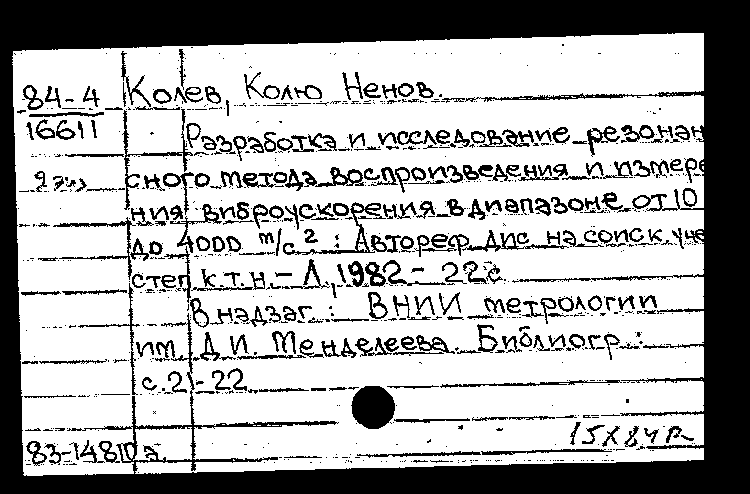 84-4 Колев, Колю Ненов.
16611 Разработка и исследование резонан
2 экз сного метода воспроизведения и измере
ния виброускорения в диапазоне от 10
до 4000 m/c² : Автореф. дис. на соиск. уче
степ к.т.н. - Л., 1982 - 22 с
В надзаг. : ВНИИ метрологии
им. Д.И. Менделеева. Библиогр.:
с. 21-22
15X84
83-14810а.